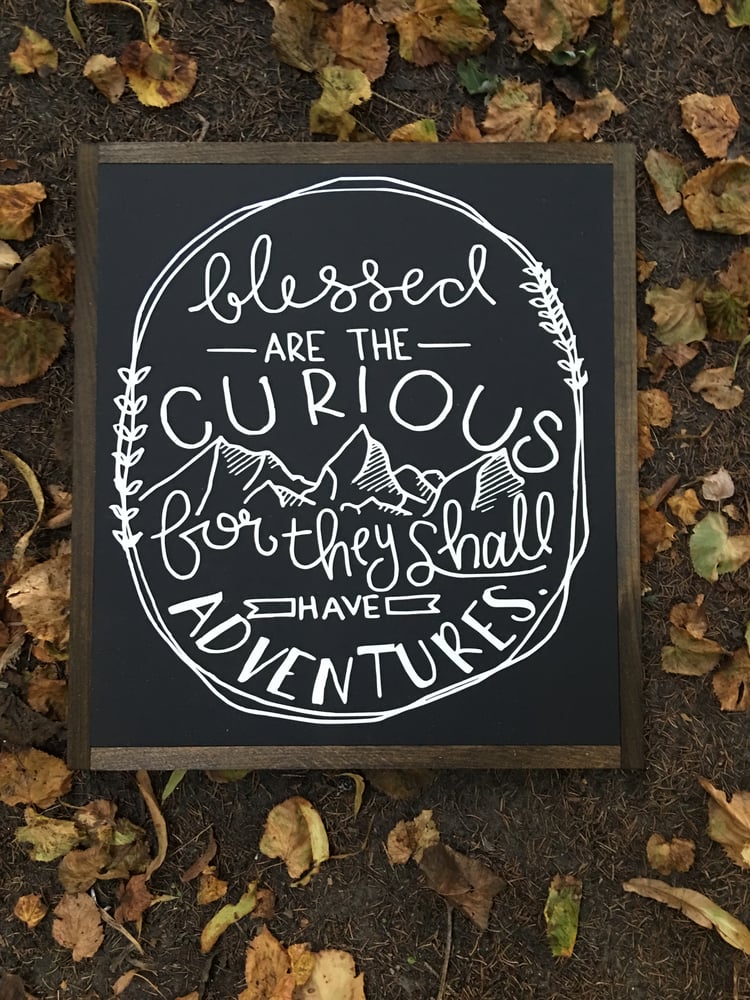 blessed
ARE THE
CURIOUS
for they shall
HAVE
ADVENTURES.